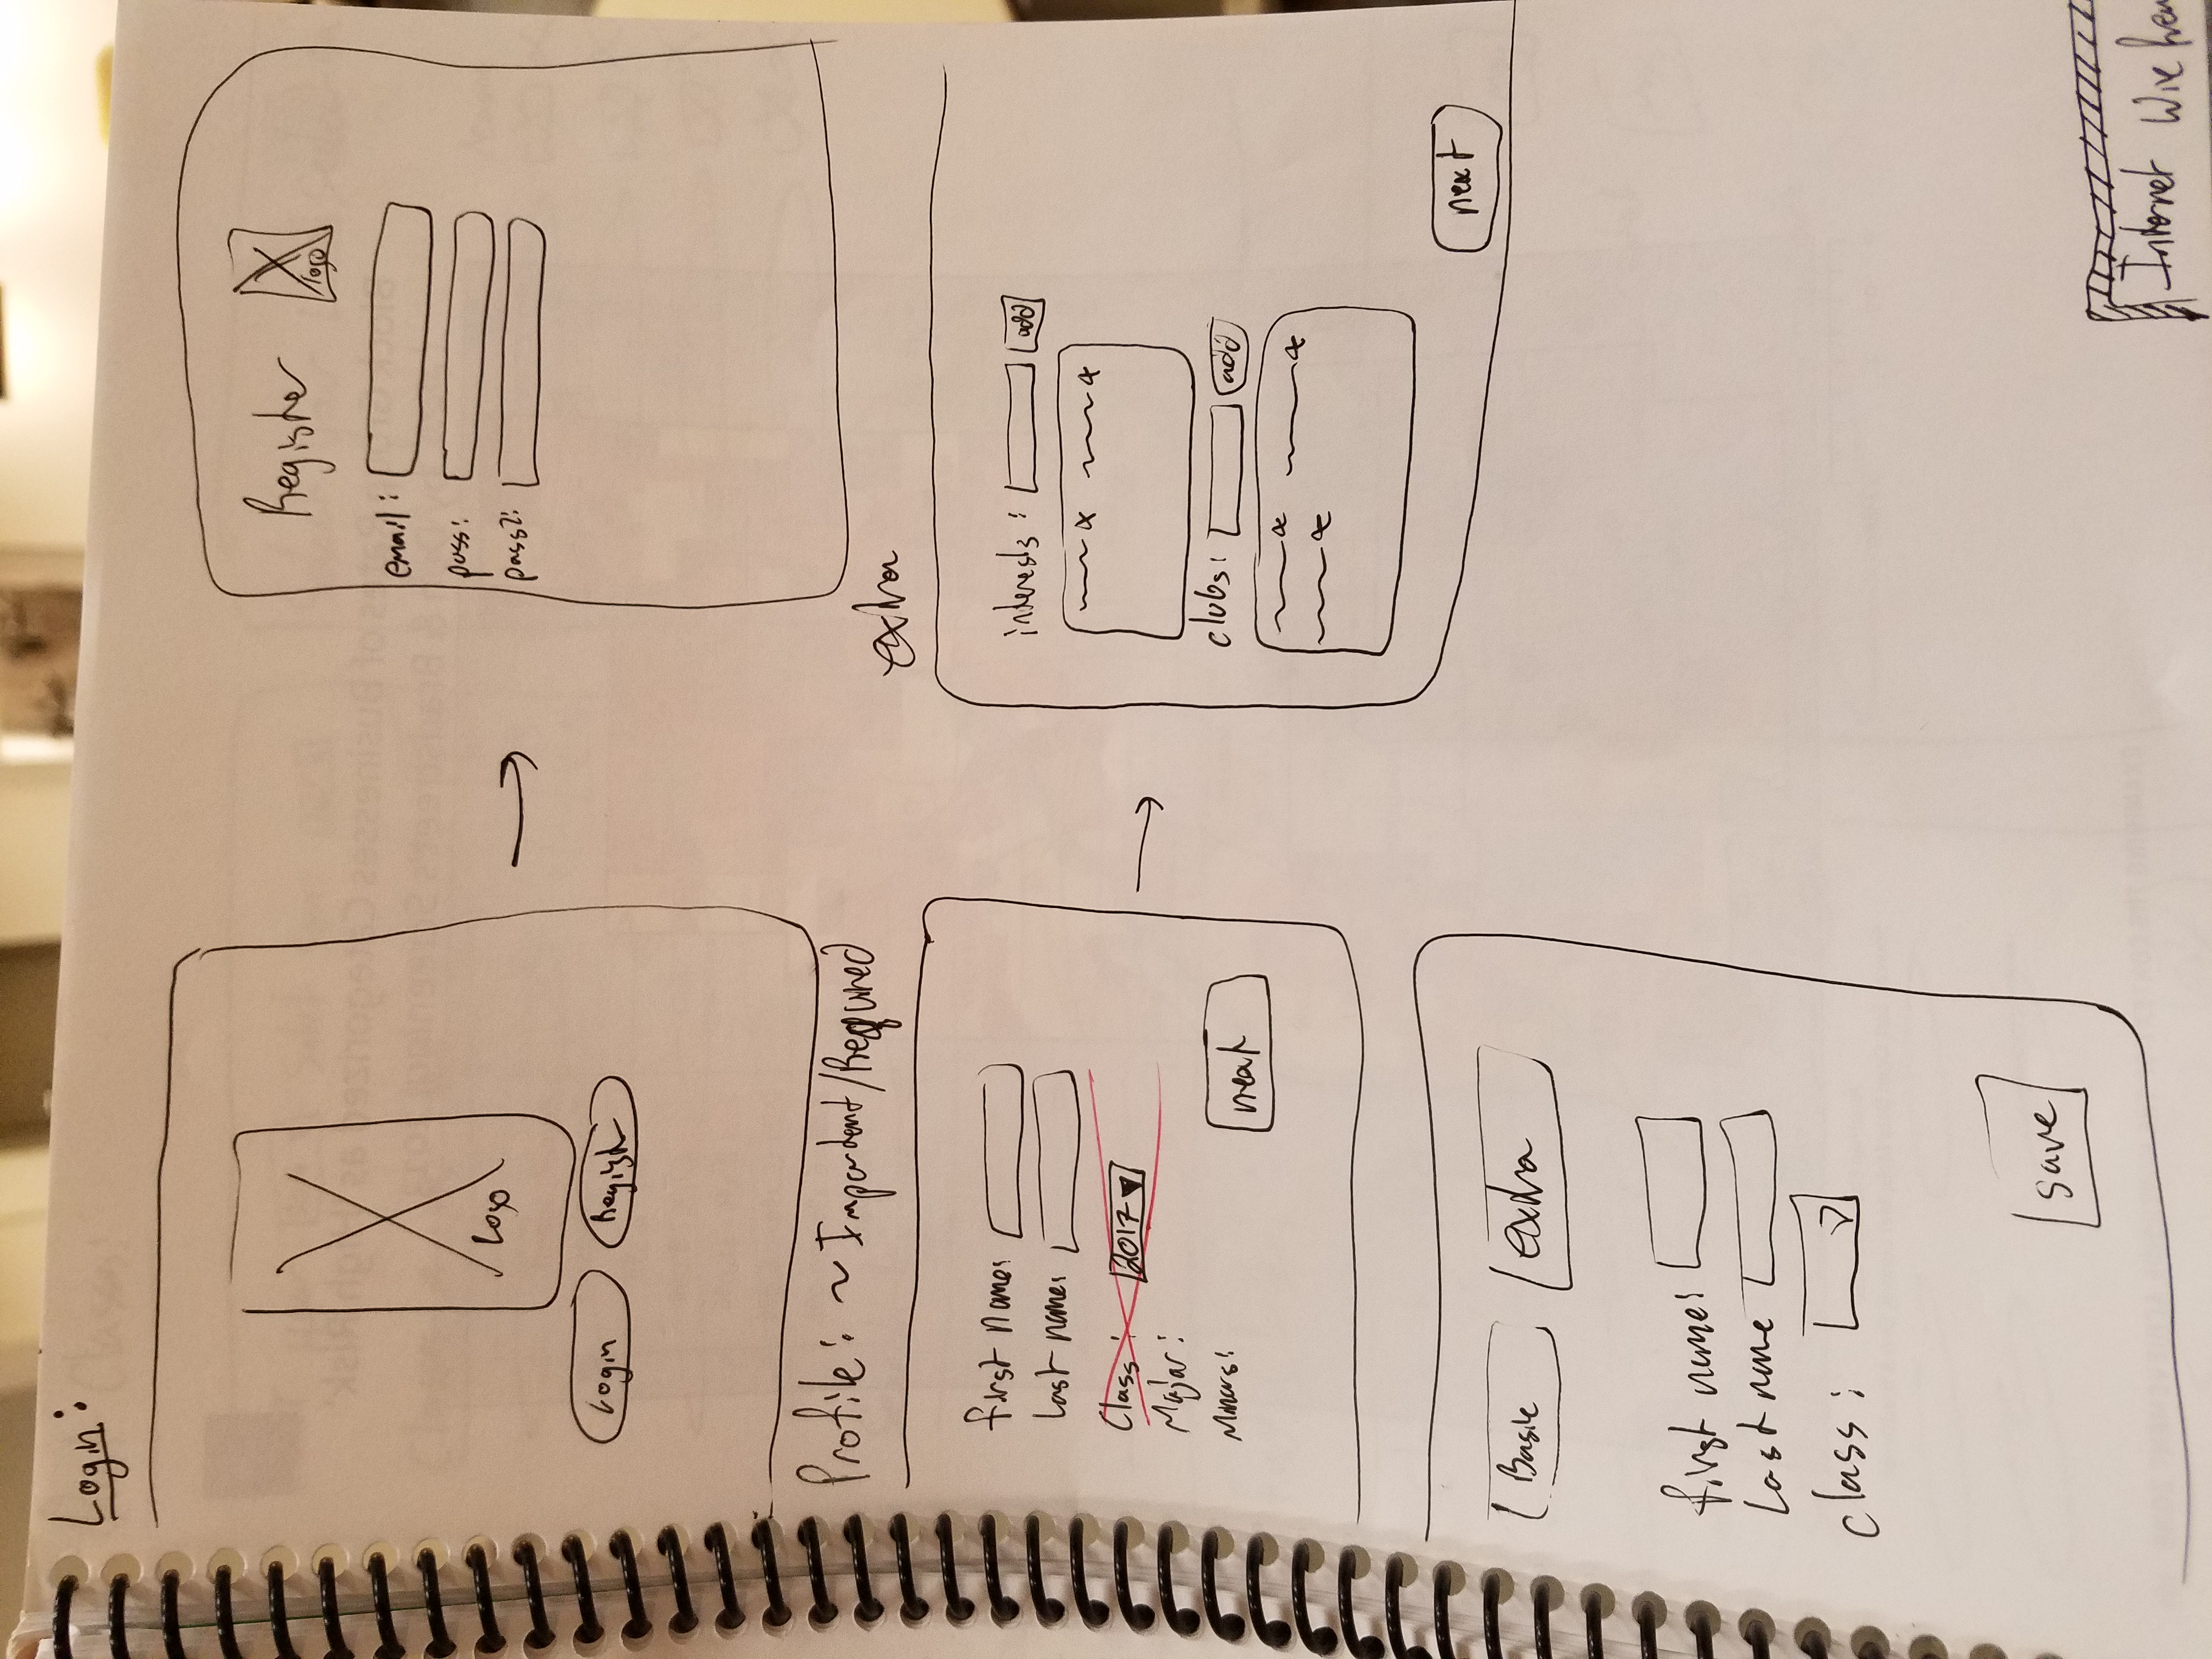 Login:
Logo
Login
Register
Register
logo
email:
pass:
pass2:
Profile: ~ Important/Required
first name:
last name:
Class: 2017
Major:
Minors:
next
extra
interests: add
clubs: add
next
Basic
extra
first name:
last name
Class:
Save
Internet Wire